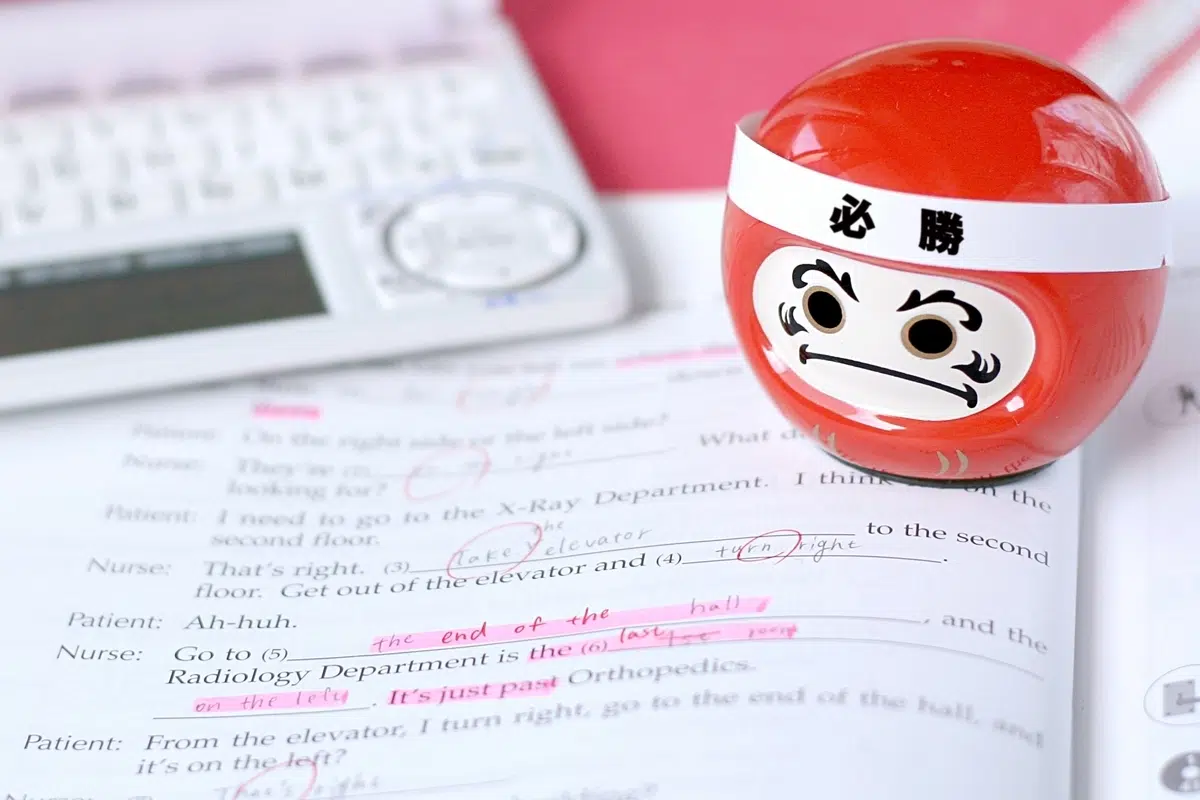 必勝
Patient: On the right side or the left side?
Nurse: They're right What
looking for?
Patient: I need to go to the X-Ray Department. I think on the
second floor.
the
Nurse: That's right. (3) Take elevator to the second
floor. Get out of the elevator and (4) turn right.
Patient: Ah-huh.
Nurse: Go to (5) the end of the hall, and the
Radiology Department is the (6) last room
on the left. It's just past Orthopedics.
Patient: From the elevator, I turn right, go to the end of the hall, and
it's on the left?
Nurse: That's right